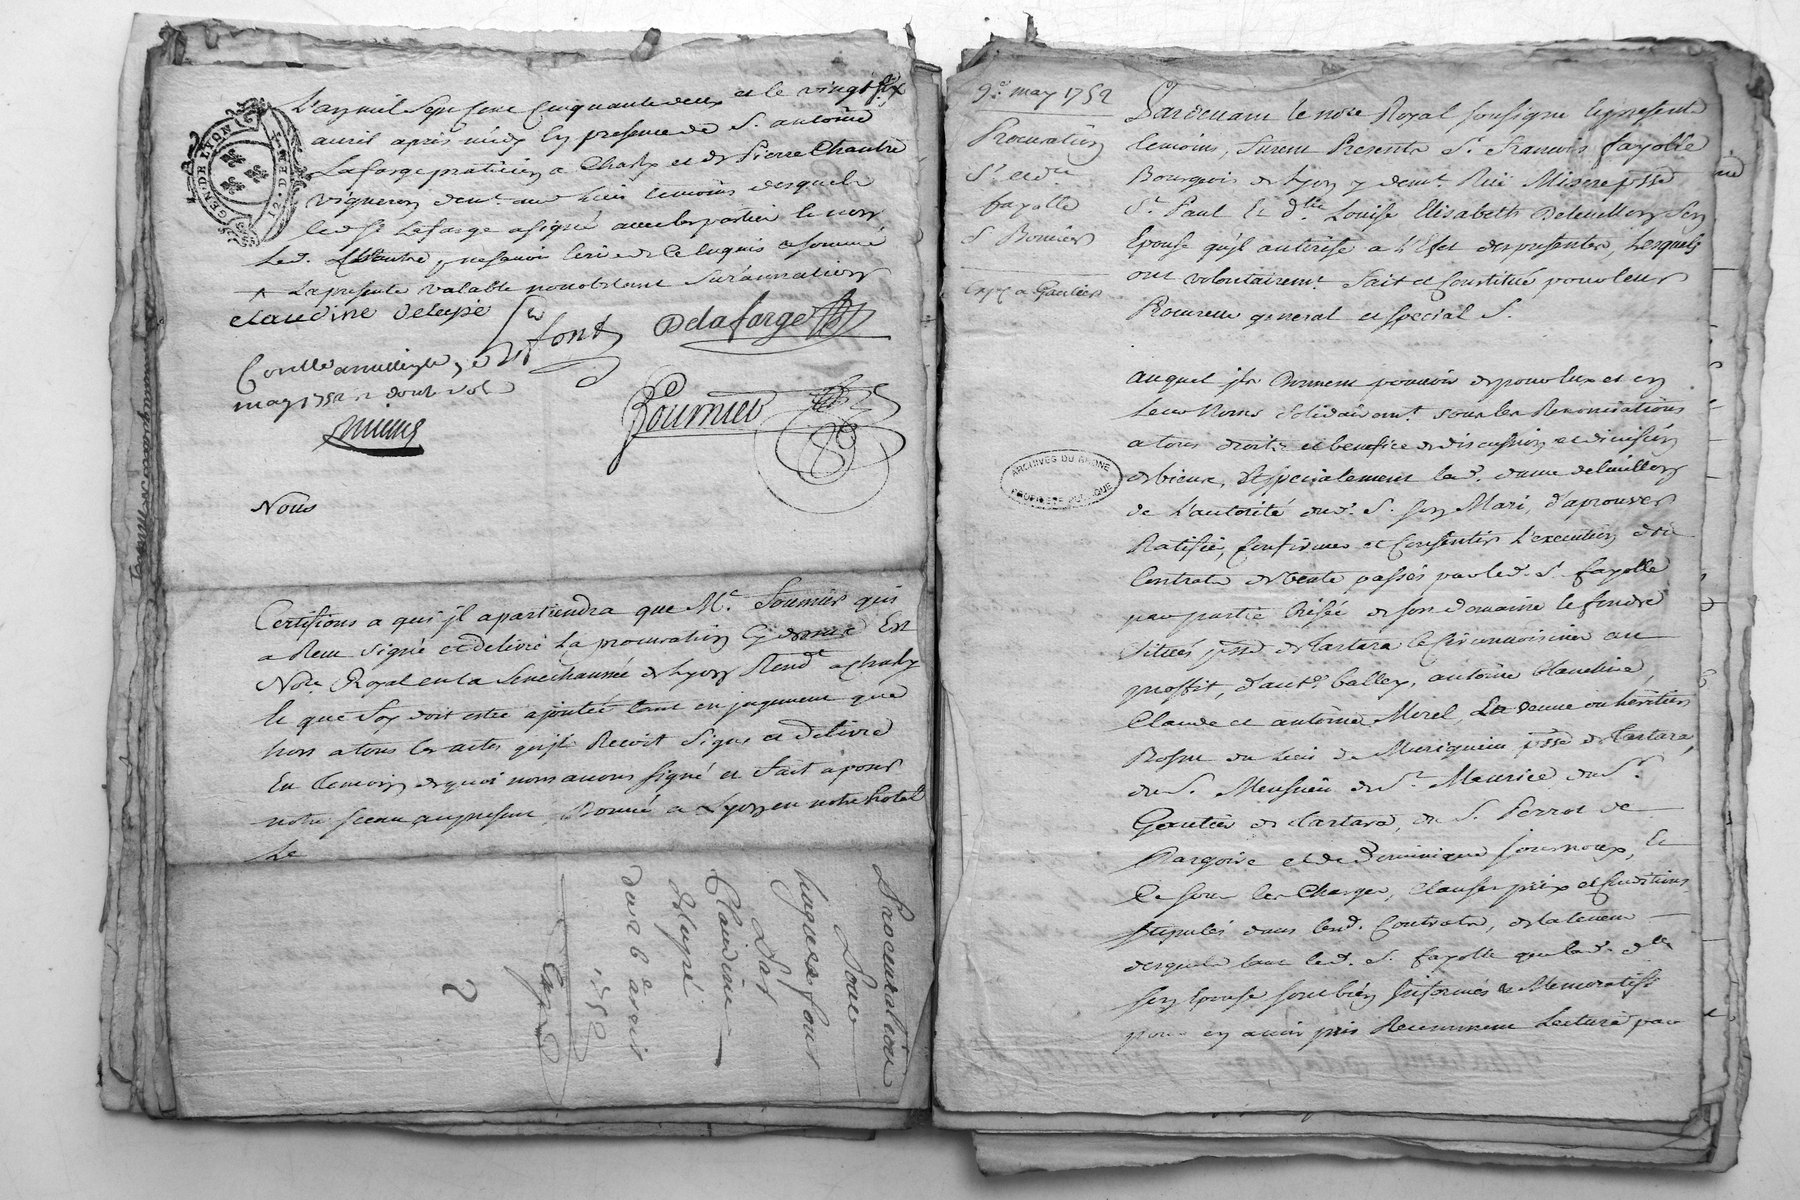 GEN. DE LYON
12. DE
L'an mil sept cent cinquante deux et le vingt six
avril après midy en presence de S. antoine
Lafarge praticien a Charly et de Pierre Chautre
vigneron dem.t aud. lieu temoins lesquels
led. S.r Lafarge a signé avec les parties le non
Led. Chautre, ne savoir ecrire de ce enquis et sommé
+ La presente valable nonobstant surannation
claudine deleypé
font Delafarge
Fournier
may 1752
Nous
Certifions a qui jl apartiendra que M.e Fournier qui
a Recu signé et delivré La procuration Cy dernier Est
No.re Royal en la Senechaussée de Lyon Resid.t a Charly
et que foy doit estre ajoutée tant en jugement que
hors a tous les actes qu'jl Recoit signe et delivre
En temoin de quoi nous avons signé et fait aposer
notre sceau au present, Donné a Lyon en notre hotel
Le
Procuration
Sous
hugues font
Par
Claudine
deleypé
du 26 avril
1752
2
9.e may 1752
Procuration
S.r et d.e
fayolle
S Bonier
Exp. a Gautier
ARCHIVES DU RHONE
PROPRIÉTÉ PUBLIQUE
Pardevant le no.re Royal soussigné et presents
temoins, furent Presents S.r François fayolle
Bourgeois de Lyon y dem.t Rue Misere p.sse
S.t Paul et d.lle Louise Elisabeth Deleuillon son
Epouse qu'jl autorise a l'Efet des presentes, Lesquels
ont volontairem.t fait et constitué pour leur
Procureur general et special S.
auquel jls donnent pouvoir de pour Eux et en
Leurs Noms solidairem.t sous les Renonciations
a tous droits et benefice de discussion et division
de biens, Et specialement lad. dame deleuillon
de l'autorité dud. S. son Mari, d'aprouver
Ratifier, Confirmer et Consentir l'execution des
Contrats de vente passés par led. S. fayolle
par partie brisée de son domaine
situés p.sse de Tartara et circonvoisines au
proffit, d'ant.e balley, antoine blandine,
Claude et antoine Morel, Les veuve ou heritiers
du lieu de p.sse de Tartara,
du S. Meusnier de S.t Maurice du S.r
Gautier de Tartara, du S. Perrot de
et de Dominique fournoux, Et
Ce sous les Charges, Clauses prix et Conditions
stipulés dans lesd. Contrats, de la teneur
desquels tant led. S. fayolle que lad. d.lle
son Epouse sont bien Informés & Memoratifs
pour en avoir pris Recemment Lecture par